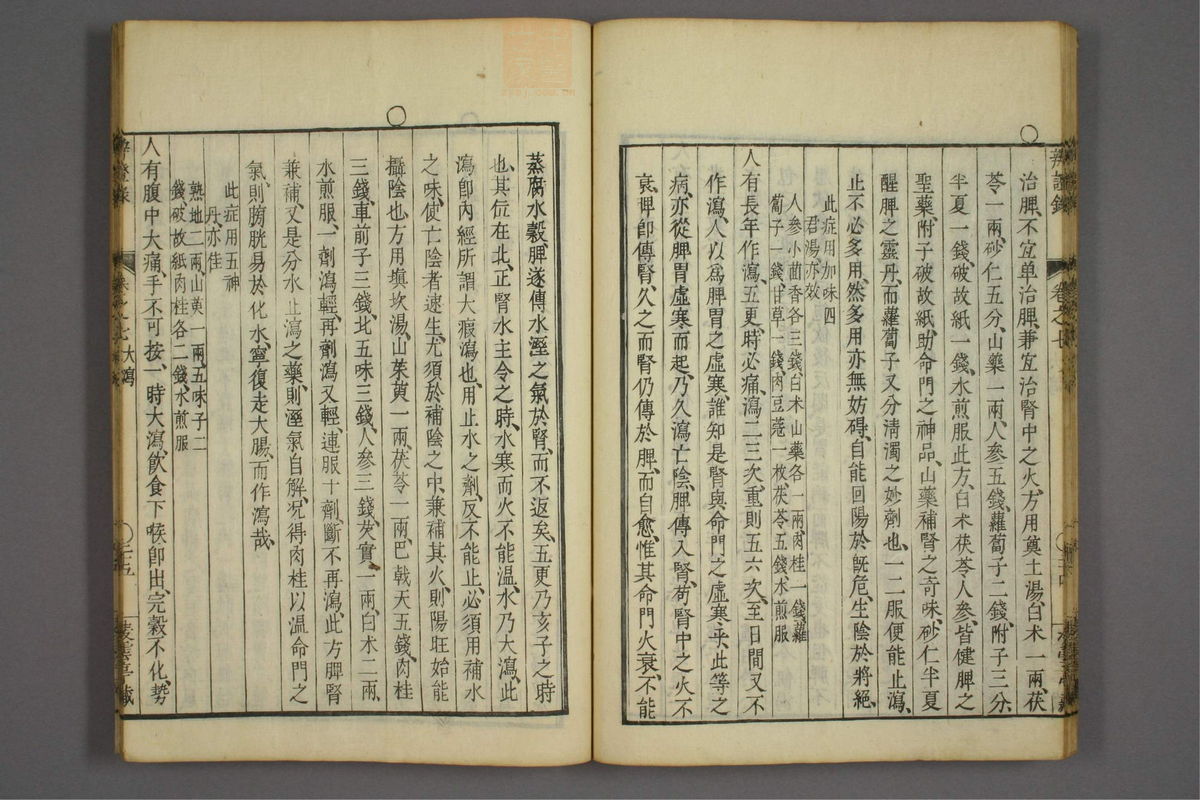 治脾不宜单治脾兼宜治腎中之火方用奠土湯白朮一兩茯
苓一兩砂仁五分山藥一兩人參五錢蘿蔔子二錢附子三分
半夏一錢破故紙一錢水煎服此方白朮茯苓人參皆健脾之
聖藥附子破故紙助命門之神品山藥補腎之奇味砂仁半夏
醒脾之靈丹而蘿蔔子又分清濁之妙劑也一二服便能止瀉
止不必多用然多用亦無妨碍自能回陽於既危生陰於將絕
此症用加味四
君湯亦效
人參小茴香各三錢白朮山藥各一兩肉桂一錢蘿
蔔子一錢甘草一錢肉豆蔻一枚茯苓五錢水煎服
人有長年作瀉五更時必痛瀉二三次重則五六次至日間又不
作瀉人以為脾胃之虛寒誰知是腎與命門之虛寒乎此等之
病亦從脾胃虛寒而起乃久瀉亡陰脾傳入腎苟腎中之火不
衰脾即傳腎久之而腎仍傳於脾而自愈惟其命門火衰不能
蒸腐水穀脾遂傳水溼之氣於腎而不返矣五更乃亥子之時
也其位在北正腎水主令之時水寒而火不能温水乃大瀉此
瀉即內經所謂大瘕瀉也用止水之劑反不能止必須用補水
之味使亡陰者速生尤須於補陰之中兼補其火則陽旺始能
攝陰也方用填坎湯山茱萸一兩茯苓一兩巴戟天五錢肉桂
三錢車前子三錢北五味三錢人參三錢芡實一兩白朮二兩
水煎服一劑瀉輕再劑瀉又輕連服十劑斷不再瀉此方脾腎
兼補又是分水止瀉之藥則溼氣自解况得肉桂以温命門之
氣則膀胱易於化水寧復走大腸而作瀉哉
此症用五神
丹亦佳
熟地二兩山萸一兩五味子二
錢破故紙肉桂各二錢水煎服
人有腹中大痛手不可按一時大瀉飲食下喉即出完穀不化勢
大瀉